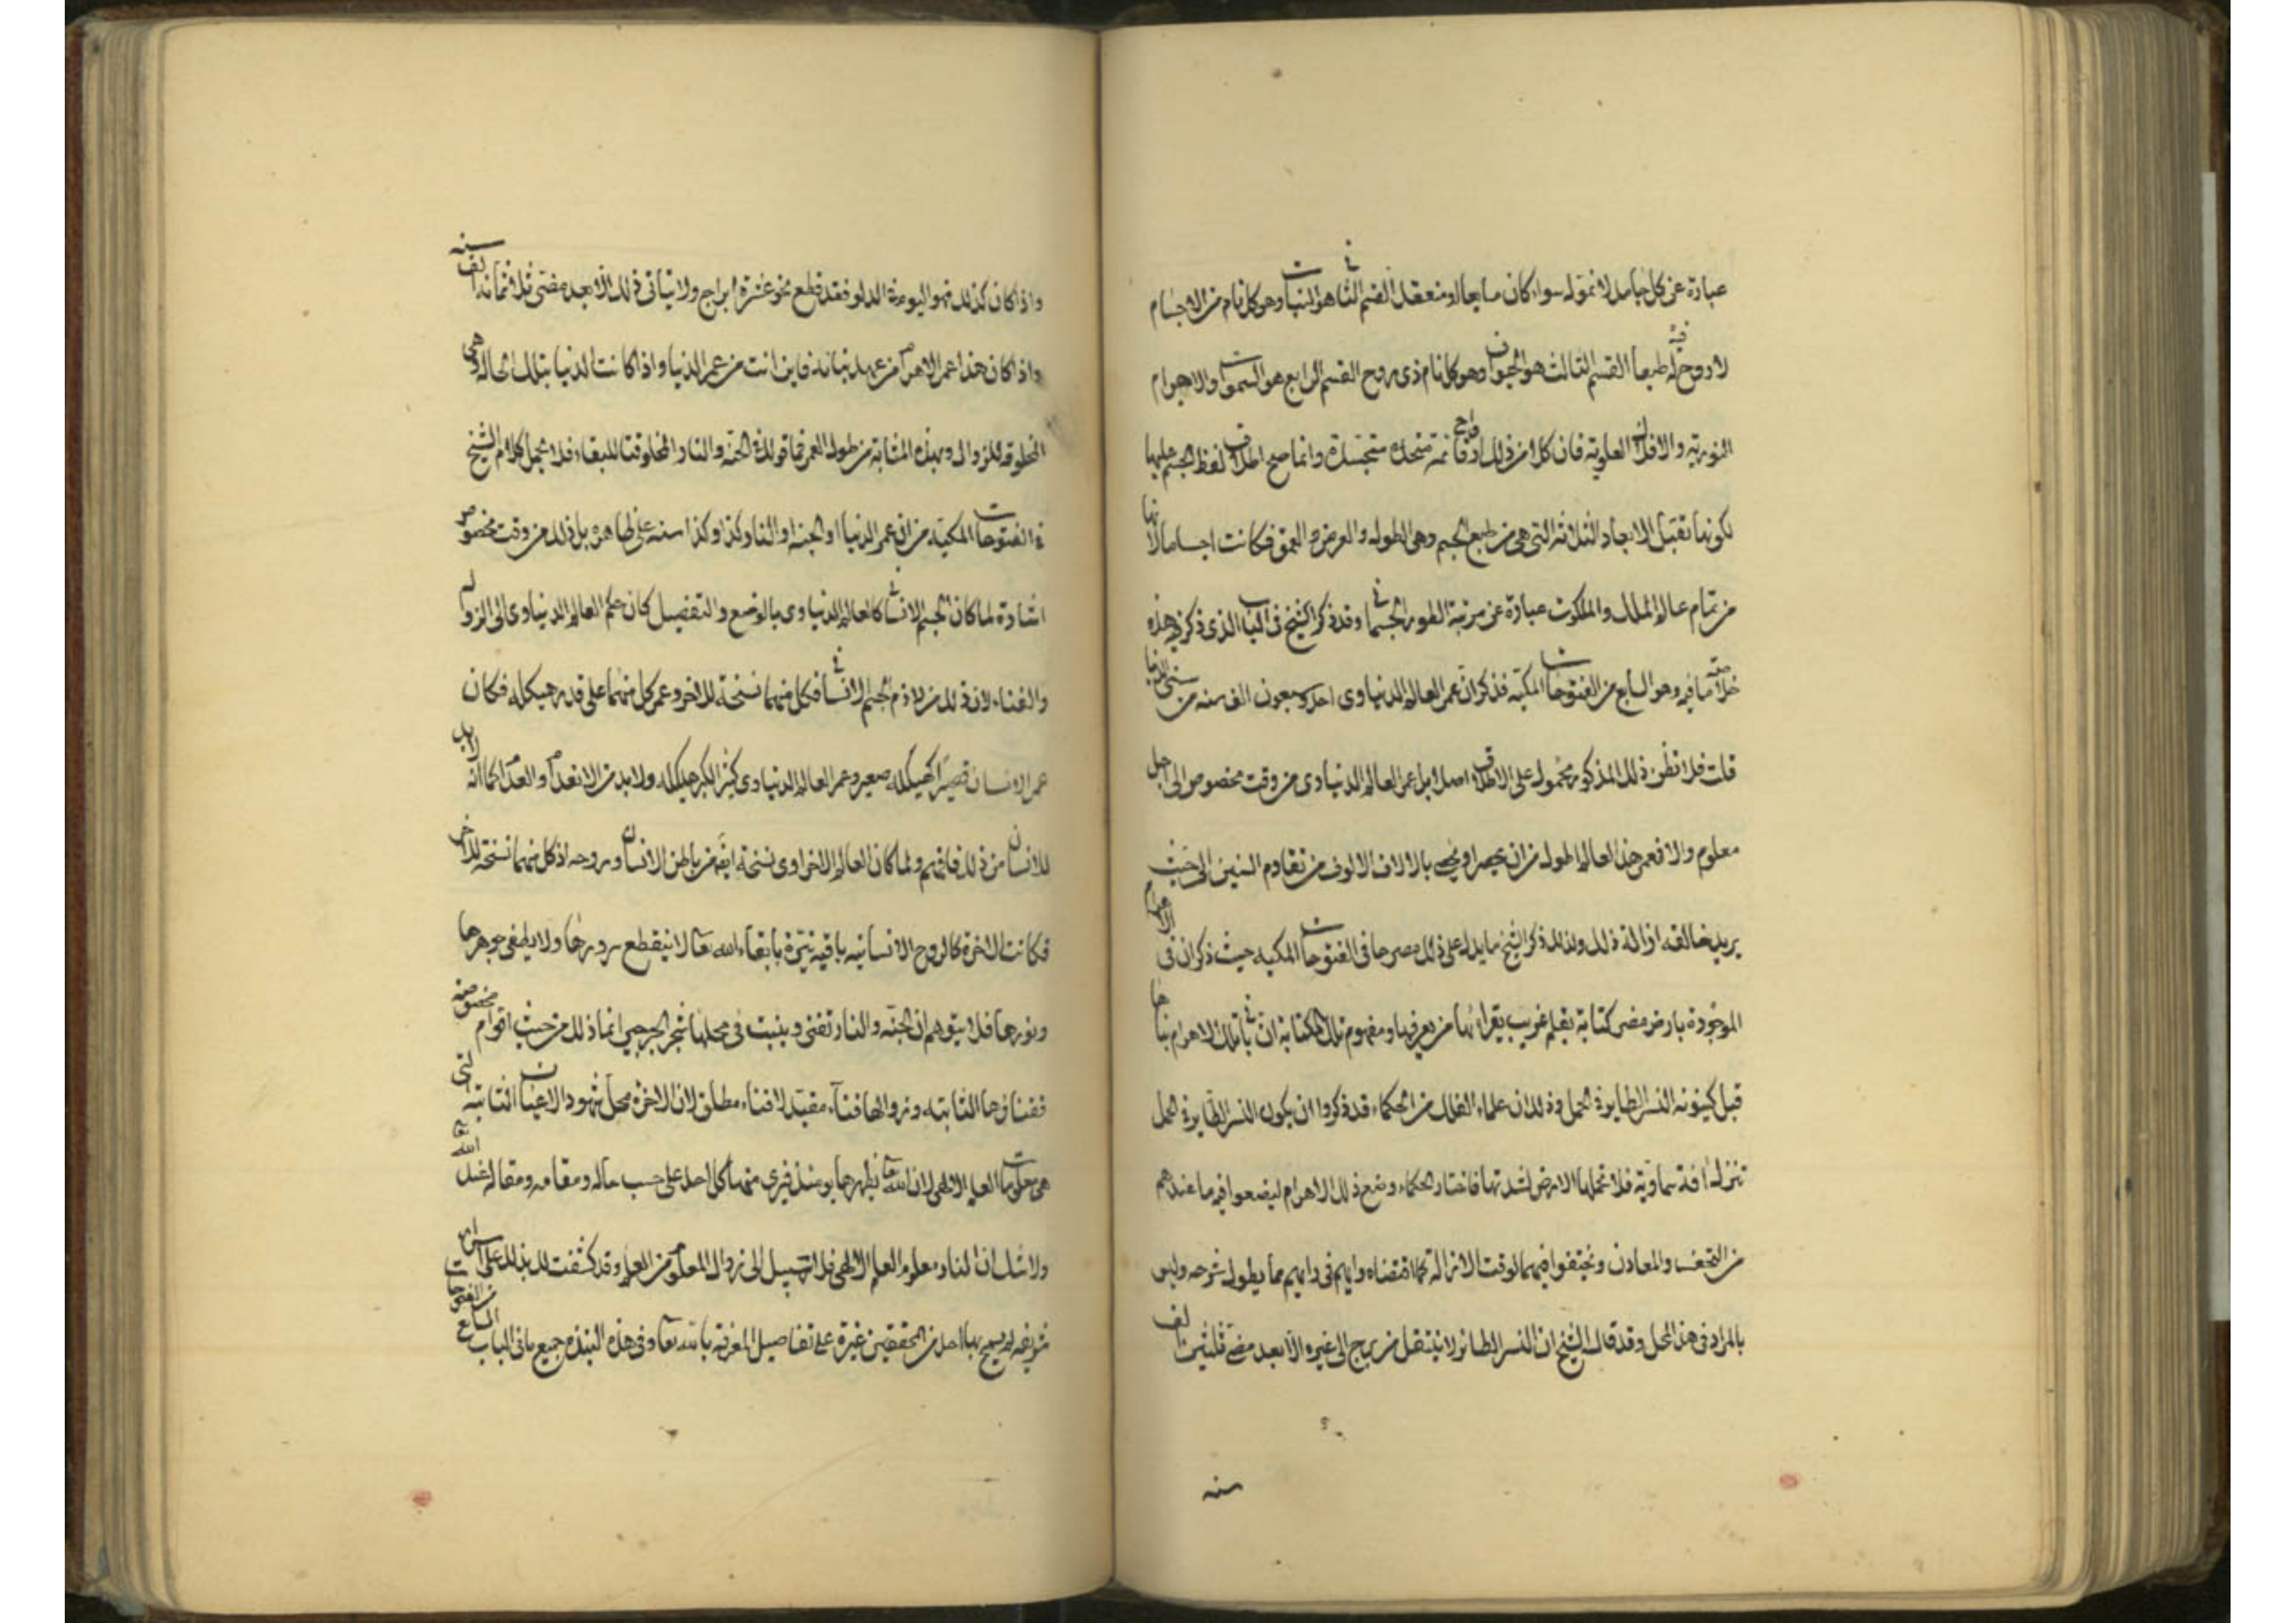 عبارة عن كل جامد لا نمو له سواء كان مايعا او منعقدا القسم الثاني هو النبات وهو كل نام من الاجسام
لا روح فيه له طبعا القسم الثالث هو الحيوان وهو كل نام ذى روح القسم الرابع هو السموات والاجرام
النورية والافلاك العلوية فان كلا من ذلك ارواح قائمة متحدة متجسدة وانما صح اطلاق لفظ الجسم عليها
لكونها تقبل الابعاد الثلاثة التي هي من طبع الجسم وهى الطول والعرض والعمق فكانت اجساما لانها
من تمام عالم الملك والملكوت عبارة عن مرتبة الظهور الجسماني وقد ذكر الشيخ فى الباب الذى ذكر فيه هذه
خلاصة ما فيه وهو السابع من الفتوحات المكية فذكر ان عمر العالم الدنياوى احد وسبعون الف سنه من سنى الدنيا
قلت فلا تظن ذلك المذكور محمول على الاطلاق اصلا بل عمر العالم الدنياوى من وقت مخصوص الى اجل
معلوم والا فعمر هذا العالم اطول من ان يحصر او يحصى بالالاف الالوف من تقادم السنين الى حيث
يريد خالقه ازالة ذلك ولذلك ذكر الشيخ ما يدل على ذلك مصرحا فى الفتوحات المكيه حيث ذكر ان فى الاهرام
الموجودة بارض مصر كتابة بقلم غريب يقراها من يعرفها ومفهوم تلك الكتابة ان بانى تلك الاهرام بناها
قبل كينونة النسر الطاير فى الحمل وذلك ان علماء الفلك من الحكماء قد ذكروا ان يكون النسر الطاير فى الحمل
تنزل آفة سماوية فلا تحملها الارض لشدتها فاختار الحكماء وضع ذلك الاهرام ليضعوا فيه ما عندهم
من التحف والمعادن ويختفوا فيهما لوقت الازالة كما اقتضاه رايهم فى دايهم مما يطول شرحه وليس
بالمراد فى هذا المحل وقد قال الشيخ ان النسر الطائر لا ينتقل من برج الى غيره الا بعد مضى ثلثين الف
سنه
واذا كان كذلك فهو اليوم فى الدلو فقد قطع نحو عشرة ابراج ولا يتاتى ذلك الا بعد مضى ثلاثمائة الف سنه
واذا كان هذا عمر الاهرام من عهد بنائه فاين انت من عمر الدنيا واذا كانت الدنيا بتلك الحالة وهى
المخلوقة للزوال وبهذه المثابة من طول العمر فما قولك فى الجنة والنار المخلوقتا للبقاء فلا تحمل كلام الشيخ
فى الفتوحات المكية من ان عمر الدنيا او الجنة او النار كذا وكذا سنه على ظاهره بل ذلك من وقت مخصوص
اشارة لما كان الجسم الانسانى كالعالم الدنياوى بالوضع والتفصيل كان حكم العالم الدنياوى الى الزوال
والفناء لان ذلك من لازم الجسم الانسانى فكل منهما نسخة للاخر وعمر كل منهما على قدر هيكله فكان
عمر الانسان قصيرا لهيكله صغير وعمر العالم الدنياوى كثيرا لكبر هيكله ولا بد من الانعدام والعدم كما انه لا بد
للانسان من ذلك فافهم ولما كان العالم الاخراوى نسخة ايضا من باطن الانسان وروحه اذ كل منهما نسخة للاخر
فكانت الاخرة كالروح الانسانيه باقية بابقاء الله تعالى لا ينقطع سرورها ولا يطفى جوهرها
ونورها فلا يتوهم ان الجنة والنار تفنى وينبت فى محلها شجر الجرجير انما ذلك من حيث اقوام مخصوصة
ففناؤها الثابتة وزوالها فناء مقيد لا فناء مطلق لان الاخرة محل شهود الاعيان الثابتة التى
هى معلومات العلم الالهى لان الله تعالى يظهرها يومئذ فيرى منها كل احد على حسب حاله ومقامه ومقاله عند الله
ولا شك ان لنا ومعلوم العلم الالهى فلا سبيل الى زوال المعلوم من العلم وقد كشفت لك بذلك على اسرار
شريفه لم يسمح بها احد من المحققين غيرة على تفاصيل المعرفة بالله تعالى وفى هذه النبذة جميع ما فى الباب السابع من الفتوحات